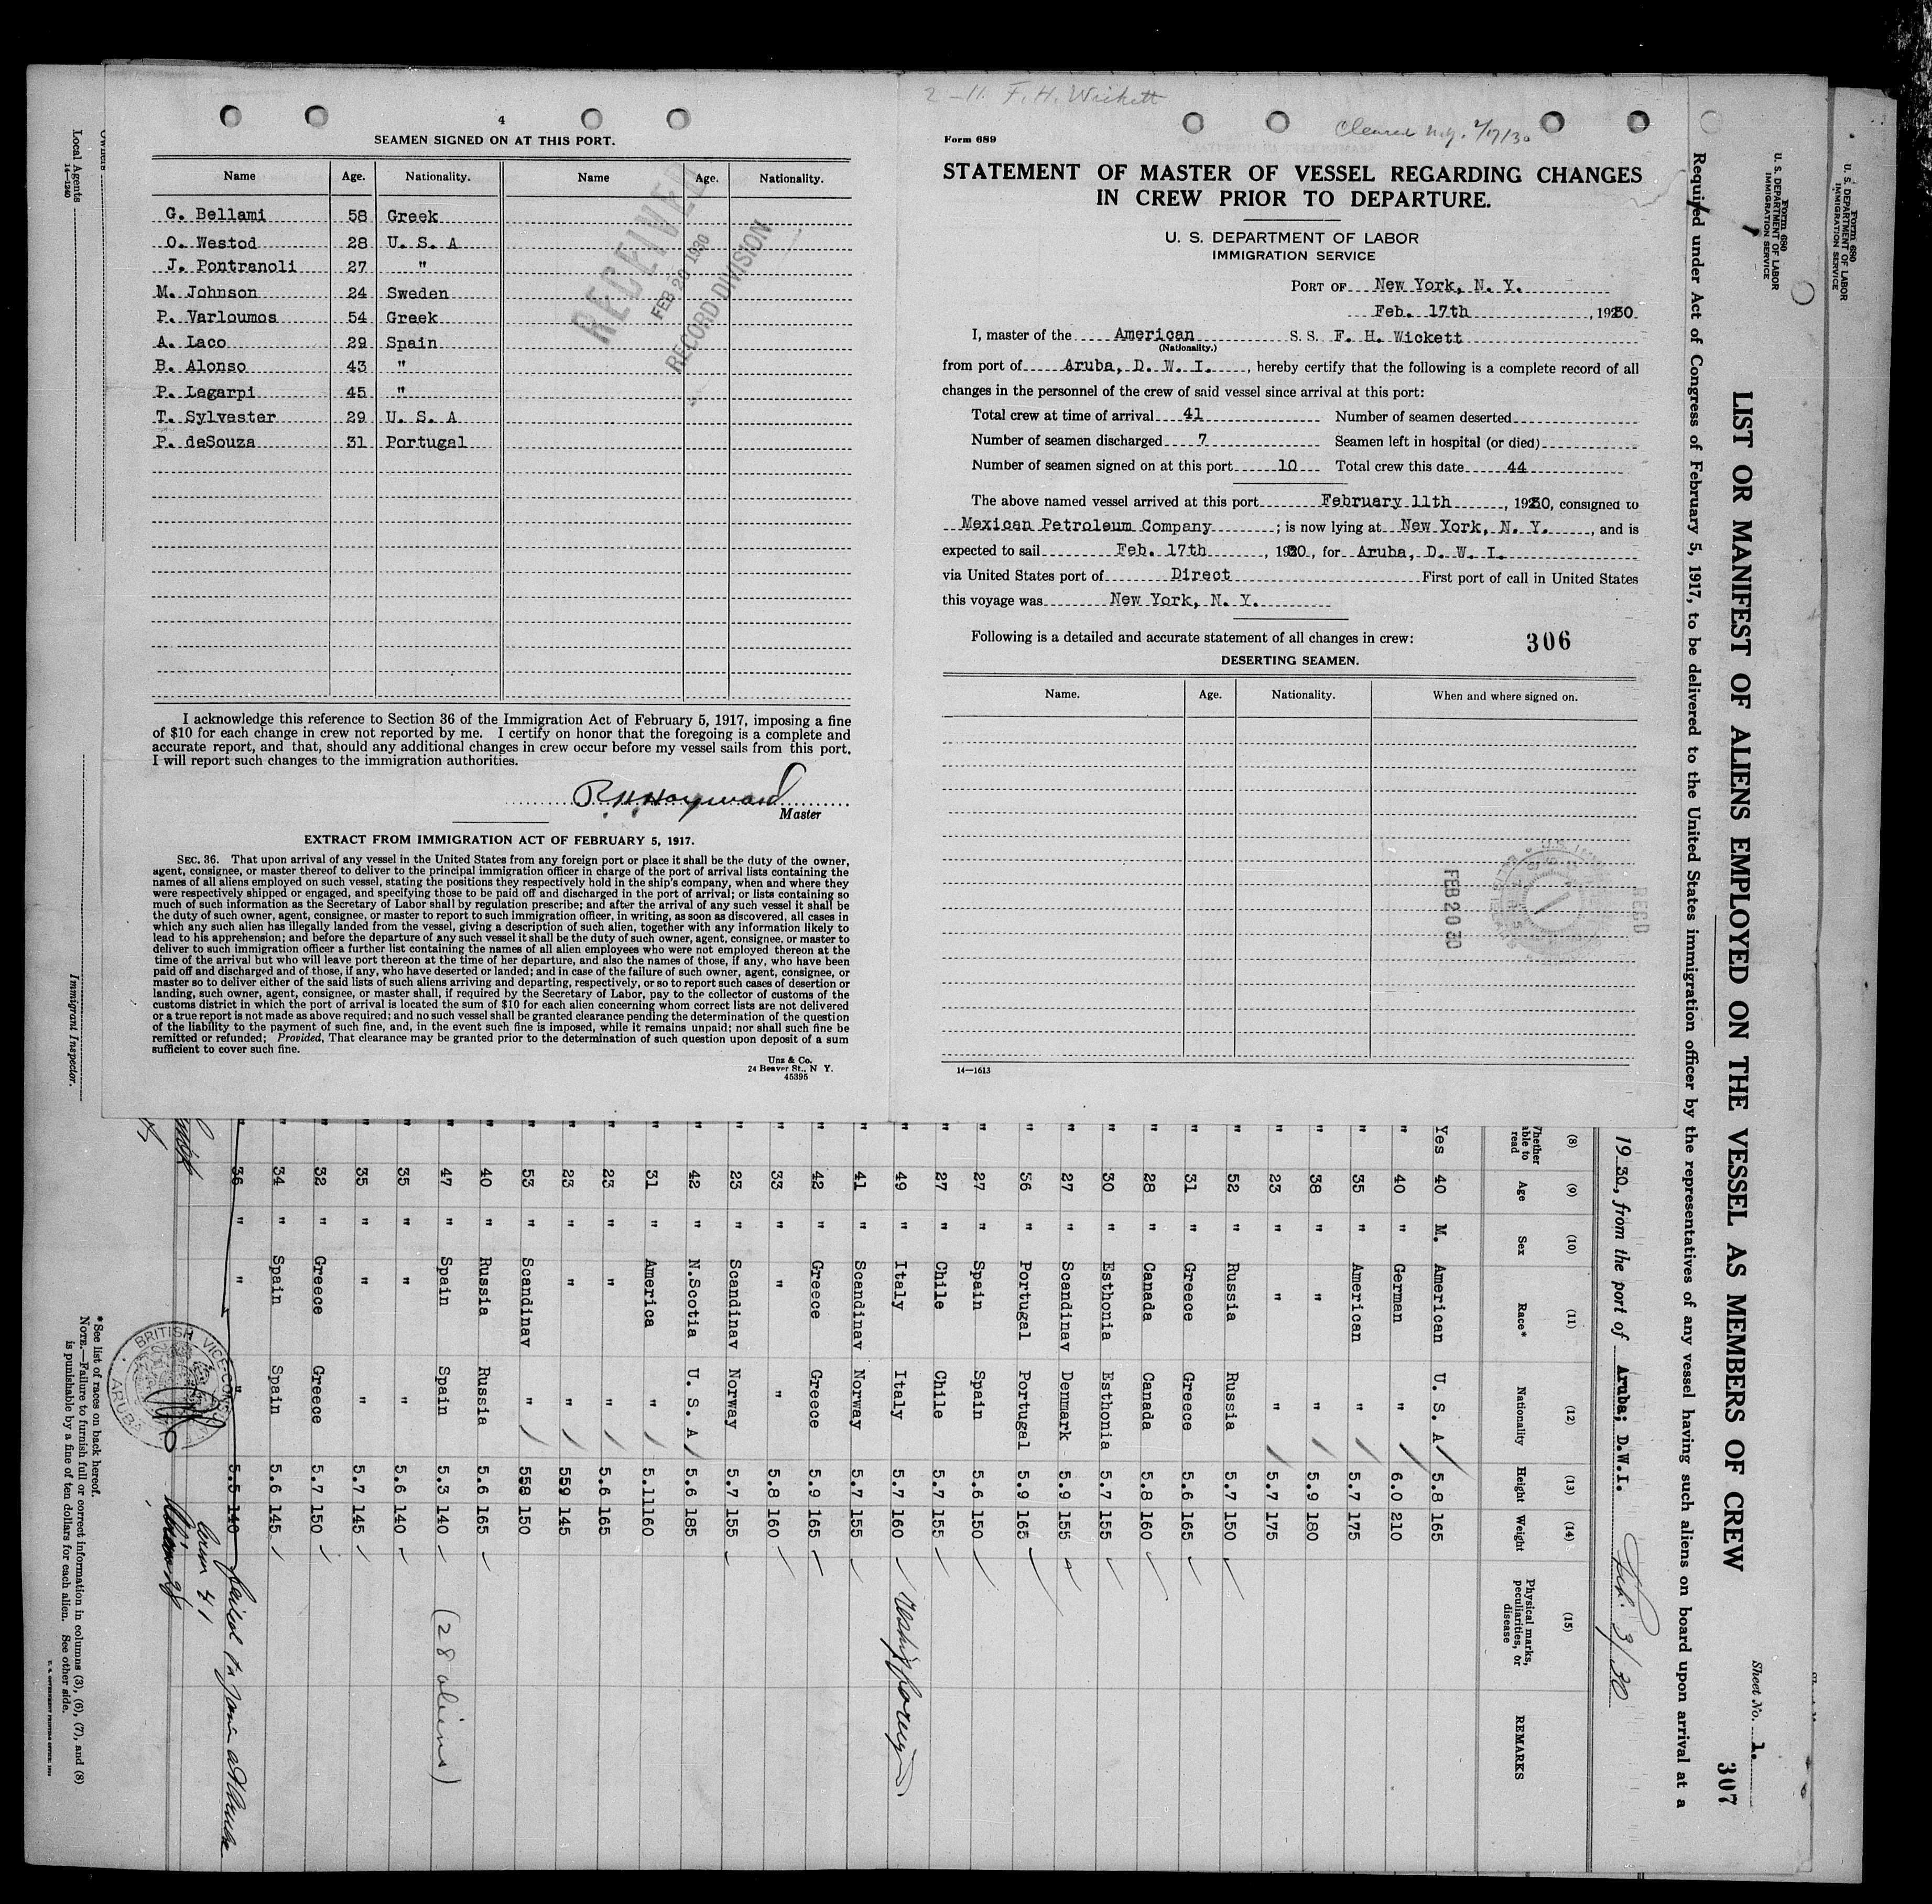 2-11. F. H. Wickett
Cleared N.Y. 2/17/30
4
SEAMEN SIGNED ON AT THIS PORT.
Name Age. Nationality. Name Age. Nationality.
G. Bellami 58 Greek
O. Westod 28 U. S. A
J. Pontranoli 27 "
M. Johnson 24 Sweden
P. Varloumos 54 Greek
A. Laco 29 Spain
B. Alonso 43 "
P. Legarpi 45 "
T. Sylvester 29 U. S. A
P. deSouza 31 Portugal
RECEIVED
FEB 20 1930
RECORD DIVISION
I acknowledge this reference to Section 36 of the Immigration Act of February 5, 1917, imposing a fine
of $10 for each change in crew not reported by me. I certify on honor that the foregoing is a complete and
accurate report, and that, should any additional changes in crew occur before my vessel sails from this port,
I will report such changes to the immigration authorities.
R H Hayward
Master
EXTRACT FROM IMMIGRATION ACT OF FEBRUARY 5, 1917.
SEC. 36. That upon arrival of any vessel in the United States from any foreign port or place it shall be the duty of the owner,
agent, consignee, or master thereof to deliver to the principal immigration officer in charge of the port of arrival lists containing the
names of all aliens employed on such vessel, stating the positions they respectively hold in the ship's company, when and where they
were respectively shipped or engaged, and specifying those to be paid off and discharged in the port of arrival; or lists containing so
much of such information as the Secretary of Labor shall by regulation prescribe; and after the arrival of any such vessel it shall be
the duty of such owner, agent, consignee, or master to report to such immigration officer, in writing, as soon as discovered, all cases in
which any such alien has illegally landed from the vessel, giving a description of such alien, together with any information likely to
lead to his apprehension; and before the departure of any such vessel it shall be the duty of such owner, agent, consignee, or master to
deliver to such immigration officer a further list containing the names of all alien employees who were not employed thereon at the
time of the arrival but who will leave port thereon at the time of her departure, and also the names of those, if any, who have been
paid off and discharged and of those, if any, who have deserted or landed; and in case of the failure of such owner, agent, consignee, or
master so to deliver either of the said lists of such aliens arriving and departing, respectively, or so to report such cases of desertion or
landing, such owner, agent, consignee, or master shall, if required by the Secretary of Labor, pay to the collector of customs of the
customs district in which the port of arrival is located the sum of $10 for each alien concerning whom correct lists are not delivered
or a true report is not made as above required; and no such vessel shall be granted clearance pending the determination of the question
of the liability to the payment of such fine, and, in the event such fine is imposed, while it remains unpaid; nor shall such fine be
remitted or refunded; Provided, That clearance may be granted prior to the determination of such question upon deposit of a sum
sufficient to cover such fine.
Unz & Co.
24 Beaver St., N Y.
45395
Form 689
STATEMENT OF MASTER OF VESSEL REGARDING CHANGES
IN CREW PRIOR TO DEPARTURE.
U. S. DEPARTMENT OF LABOR
IMMIGRATION SERVICE
PORT OF New York, N. Y.
Feb. 17th , 1930
I, master of the American S. S. F. H. Wickett
(Nationality.)
from port of Aruba, D. W. I. , hereby certify that the following is a complete record of all
changes in the personnel of the crew of said vessel since arrival at this port:
Total crew at time of arrival 41 Number of seamen deserted
Number of seamen discharged 7 Seamen left in hospital (or died)
Number of seamen signed on at this port 10 Total crew this date 44
The above named vessel arrived at this port February 11th , 1930, consigned to
Mexican Petroleum Company ; is now lying at New York, N. Y. , and is
expected to sail Feb. 17th , 1930, for Aruba, D. W. I.
via United States port of Direct First port of call in United States
this voyage was New York, N. Y.
Following is a detailed and accurate statement of all changes in crew:
306
DESERTING SEAMEN.
Name. Age. Nationality. When and where signed on.
FEB 20 30
RECD
14—1613
Form 680
U. S. DEPARTMENT OF LABOR
IMMIGRATION SERVICE
Form 680
U. S. DEPARTMENT OF LABOR
IMMIGRATION SERVICE
Sheet No. 1.
307
LIST OR MANIFEST OF ALIENS EMPLOYED ON THE VESSEL AS MEMBERS OF CREW
Required under Act of Congress of February 5, 1917, to be delivered to the United States immigration officer by the representatives of any vessel having such aliens on board upon arrival at a
1930, from the port of Aruba; D.W.I. Feb. 3/30
(8) (9) (10) (11) (12) (13) (14) (15)
Whether able to read Age Sex Race* Nationality Height Weight Physical marks, peculiarities, or disease REMARKS
Yes 40 M. American U. S. A 5.8 165
" 40 " German " 6.0 210
" 35 " American " 5.7 175
" 38 " " " 5.9 180
" 23 " " " 5.7 175
" 52 " Russia Russia 5.7 150
" 31 " Greece Greece 5.6 165
" 28 " Canada Canada 5.8 160
" 30 " Esthonia Esthonia 5.7 155
" 27 " Scandinav Denmark 5.9 155
" 56 " Portugal Portugal 5.9 165
" 27 " Spain Spain 5.6 150
" 27 " Chile Chile 5.7 155
" 49 " Italy Italy 5.7 160
" 41 " Scandinav Norway 5.7 155
" 42 " Greece Greece 5.9 165
" 33 " " " 5.8 160
" 23 " Scandinav Norway 5.7 155
" 42 " N.Scotia U. S. A 5.6 185
" 31 " America " 5.11 160
" 23 " " " 5.6 165
" 23 " " " 559 145
" 53 " Scandinav " 558 150
" 40 " Russia Russia 5.6 165
" 47 " Spain Spain 5.3 140 (28 aliens)
" 35 " " " 5.6 140
" 35 " " " 5.7 145
" 32 " Greece Greece 5.7 150
" 34 " Spain Spain 5.6 145
" 36 " " " 5.5 140 failed to join at Aruba
41
BRITISH VICE-CONSULATE
ARUBA
*See list of races on back hereof.
NOTE.—Failure to furnish full or correct information in columns (3), (6), (7), and (8)
is punishable by a fine of ten dollars for each alien. See other side.
Immigrant Inspector.
Owners
Local Agents
14—1240